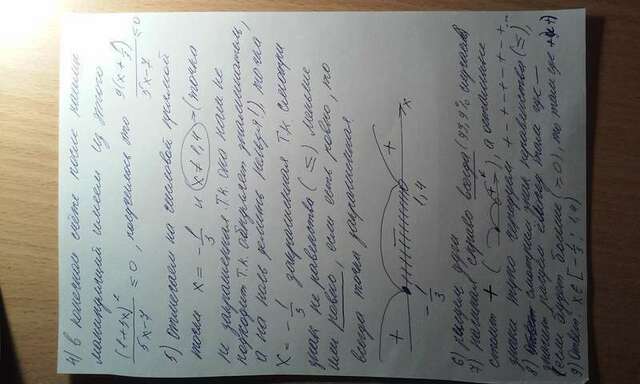 4) в конечном счёте после наших
манипуляций имеем из этого
(1+3x)²/5x-7 ≤ 0, получилось это 9(x+1/3)/5x-7 ≤ 0
5) отмечаем на числовой прямой
точки x = -1/3 и x ≠ 1,4 → (точка
не закрашенная т.к. она нам не
подходит т.к. обнуляет знаменатель,
а на ноль делить нельзя!), точка
x = -1/3 закрашенная т.к смотри
знак не равенства (≤) меньше
или равно, если есть равно, то
всегда точка закрашенная
+ - +
-1/3 1,4 x
6) рисуем дуги
7) начиная справо всегда (99,9% случаев)
стоит + ( + ), а остальные
знаки тупо чередуем + - + - + - + ...
8) смотрим знак неравенства (≤),
значит рисуем там где —
(если будет больше (≥0), то там где +
9) Ответ: x ∈ [-1/3; 1,4)